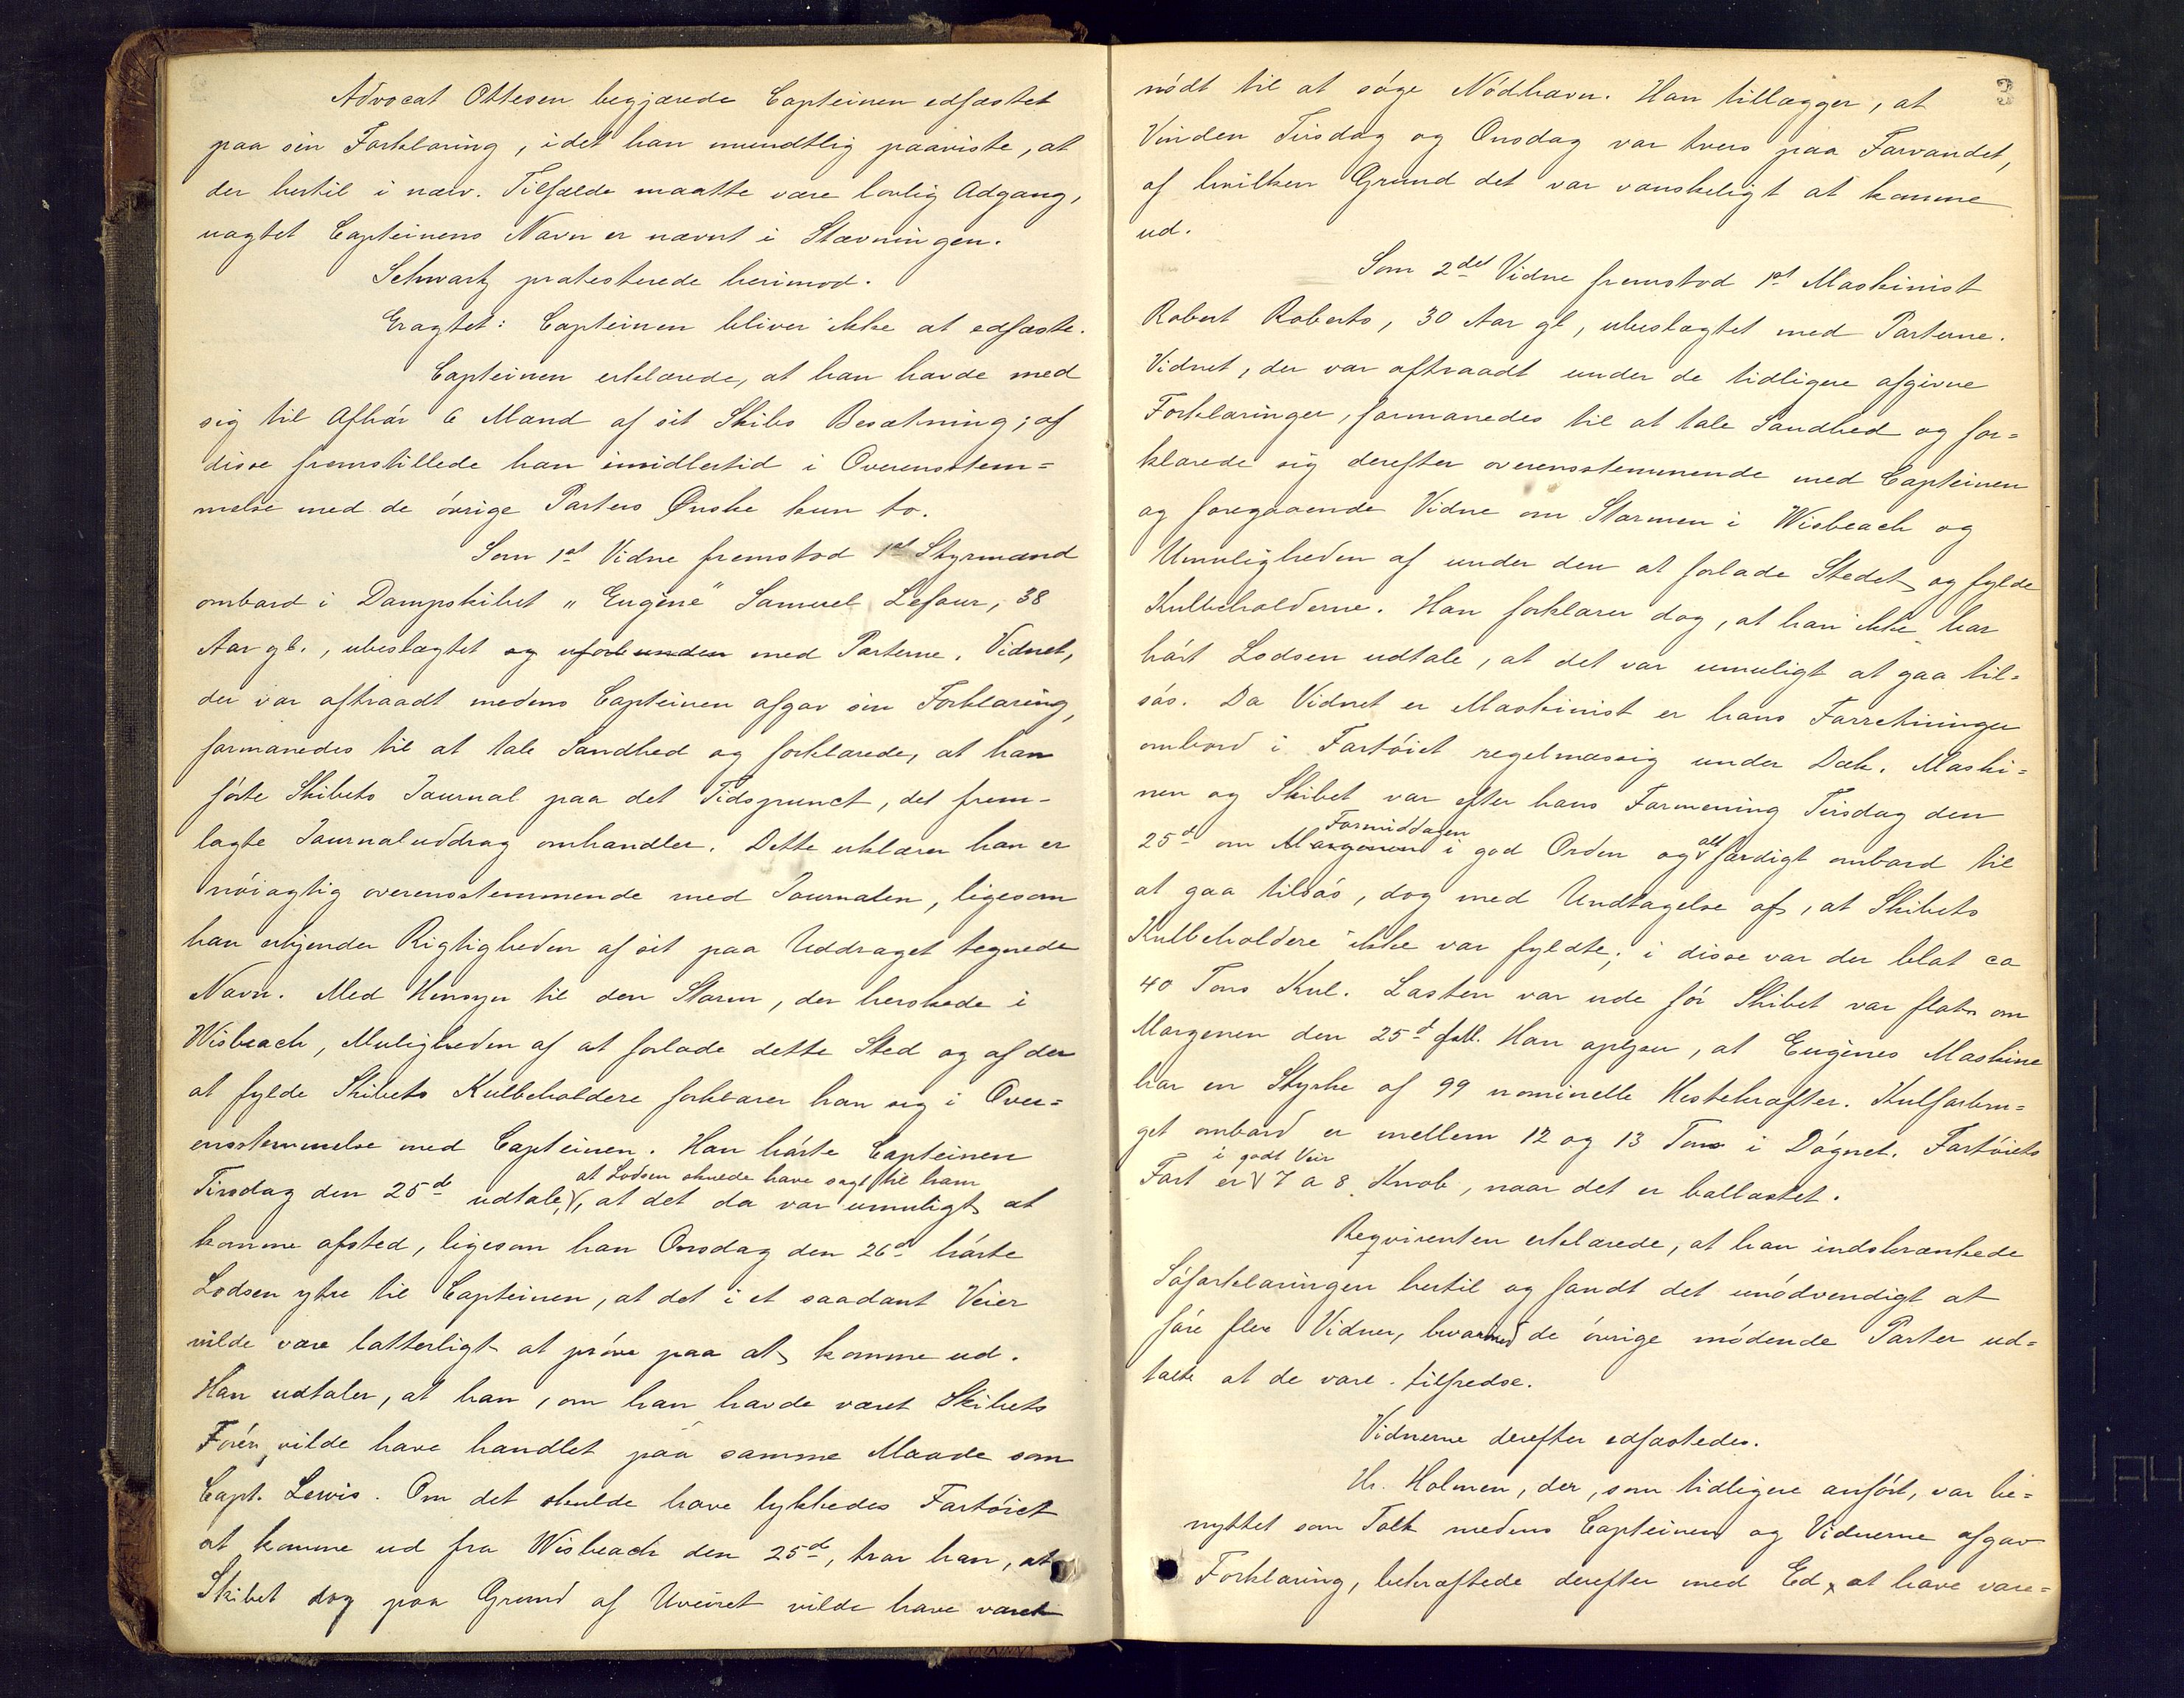 Advocat Ottesen begjærede Capteinen edfæstet
paa sin Forklaring, idet han mundtlig paaviste, at
der hertil i nærv. Tilfælde maatte være lovlig Adgang,
uagtet Capteinens Navn er nævnt i Stævningen.
Schwartz protesterede herimod.
Eragtet: Capteinen bliver ikke at edfæste.
Capteinen erklærede, at han havde med
sig til Afhør 6 Mand af sit Skibs Besætning; af
disse fremstillede han imidlertid i Overensstem=
melse med de övrige Parters Ønske kun to.
Som 1st Vidne fremstod 1st Styrmand
ombord i Dampskibet "Eugène" Samuel Lefour, 38
Aar gl., ubeslægtet og uforbunden med Parterne. Vidnet,
der var aftraadt medens Capteinen afgav sin Forklaring,
formanedes til at tale Sandhed og forklarede, at han
förte Skibets Journal paa det Tidspunct, det frem-
lagte Journaluddrag omhandler. Dette erklærer han er
nöiagtig overensstemmende med Journalen, ligesom
han erkjender Rigtigheden af sit paa Uddraget tegnede
Navn. Med Hensyn til den Storm, der herskede i
Wisbeach, Muligheden af at forlade dette Sted og af der
at fylde Skibets Kulbeholdere forklarer han sig i Over=
ensstemmelse med Capteinen. Han hörte Capteinen
at Lodsen skulde have sagt til ham
Tirsdag den 25de udtale, at det da var umuligt at
komme afsted, ligesom han Onsdag den 26d hörte
Lodsen ytre til Capteinen, at det i et saadant Veier
vilde være latterligt at pröve paa at komme ud.
Han udtaler, at han, om han havde været Skibets
Förer, vilde have handlet paa samme Maade som
Capt. Lewis. Om det skulde have lykkedes Fartöiet
at komme ud fra Wisbeach den 25de, tror han, at
Skibet dog paa Grund af Uveiret vilde have været
63
nödt til at söge Nödhavn. Han tillægger, at
Vinden Tirsdag og Onsdag var tvers paa Farvandet,
af hvilken Grund det var vanskeligt at komme
ud.
Som 2det Vidne fremstod 1st Maskinist
Robert Roberts, 30 Aar gl, ubeslægtet med Parterne.
Vidnet, der var aftraadt under de tidligere afgivne
Forklaringer, formanedes til at tale Sandhed og for=
klarede sig derefter overensstemmende med Capteinen
og foregaaende Vidne om Stormen i Wisbeach og
Umuligheden af under den at forlade Stedet og fylde
Kulbeholderne. Han forklarer dog, at han ikke har
hört Lodsen udtale, at det var umuligt at gaa til=
sös. Da Vidnet er Maskinist er hans Forretninger
ombord i Fartöiet regelmæssig under Dæk. Maski=
nen og Skibet var efter hans Formening Tirsdag den
Formiddagen alt
25d om Morgenen i god Orden og færdigt ombord til
at gaa tilsös, dog med Undtagelse af, at Skibets
Kulbeholdere ikke var fyldte; i disse var der blot ca
40 Tons Kul. Lasten var ude för Skibet var flot om
Morgenen den 25d Han oplyser, at Eugènes Maskine
har en Styrke af 99 nominelle Hestekræfter. Kulforbru=
get ombord er mellem 12 og 13 Tons i Dögnet. Fartöiets
i godt Veir
Fart er 7 a 8 Knob, naar det er ballastet.
Reqvirenten erklærede, at han indskrænkede
Söforklaringen hertil og fandt det unödvendigt at
före flere Vidner, hvormed de övrige mödende Parter ud=
talte at de vare tilfredse.
Vidnerne derefter edfæstedes.
Hr. Holmen, der, som tidligere anfört, var be=
nyttet som Tolk medens Capteinen og Vidnerne afgav
Forklaring, bekræftede derefter med Ed at have vare=